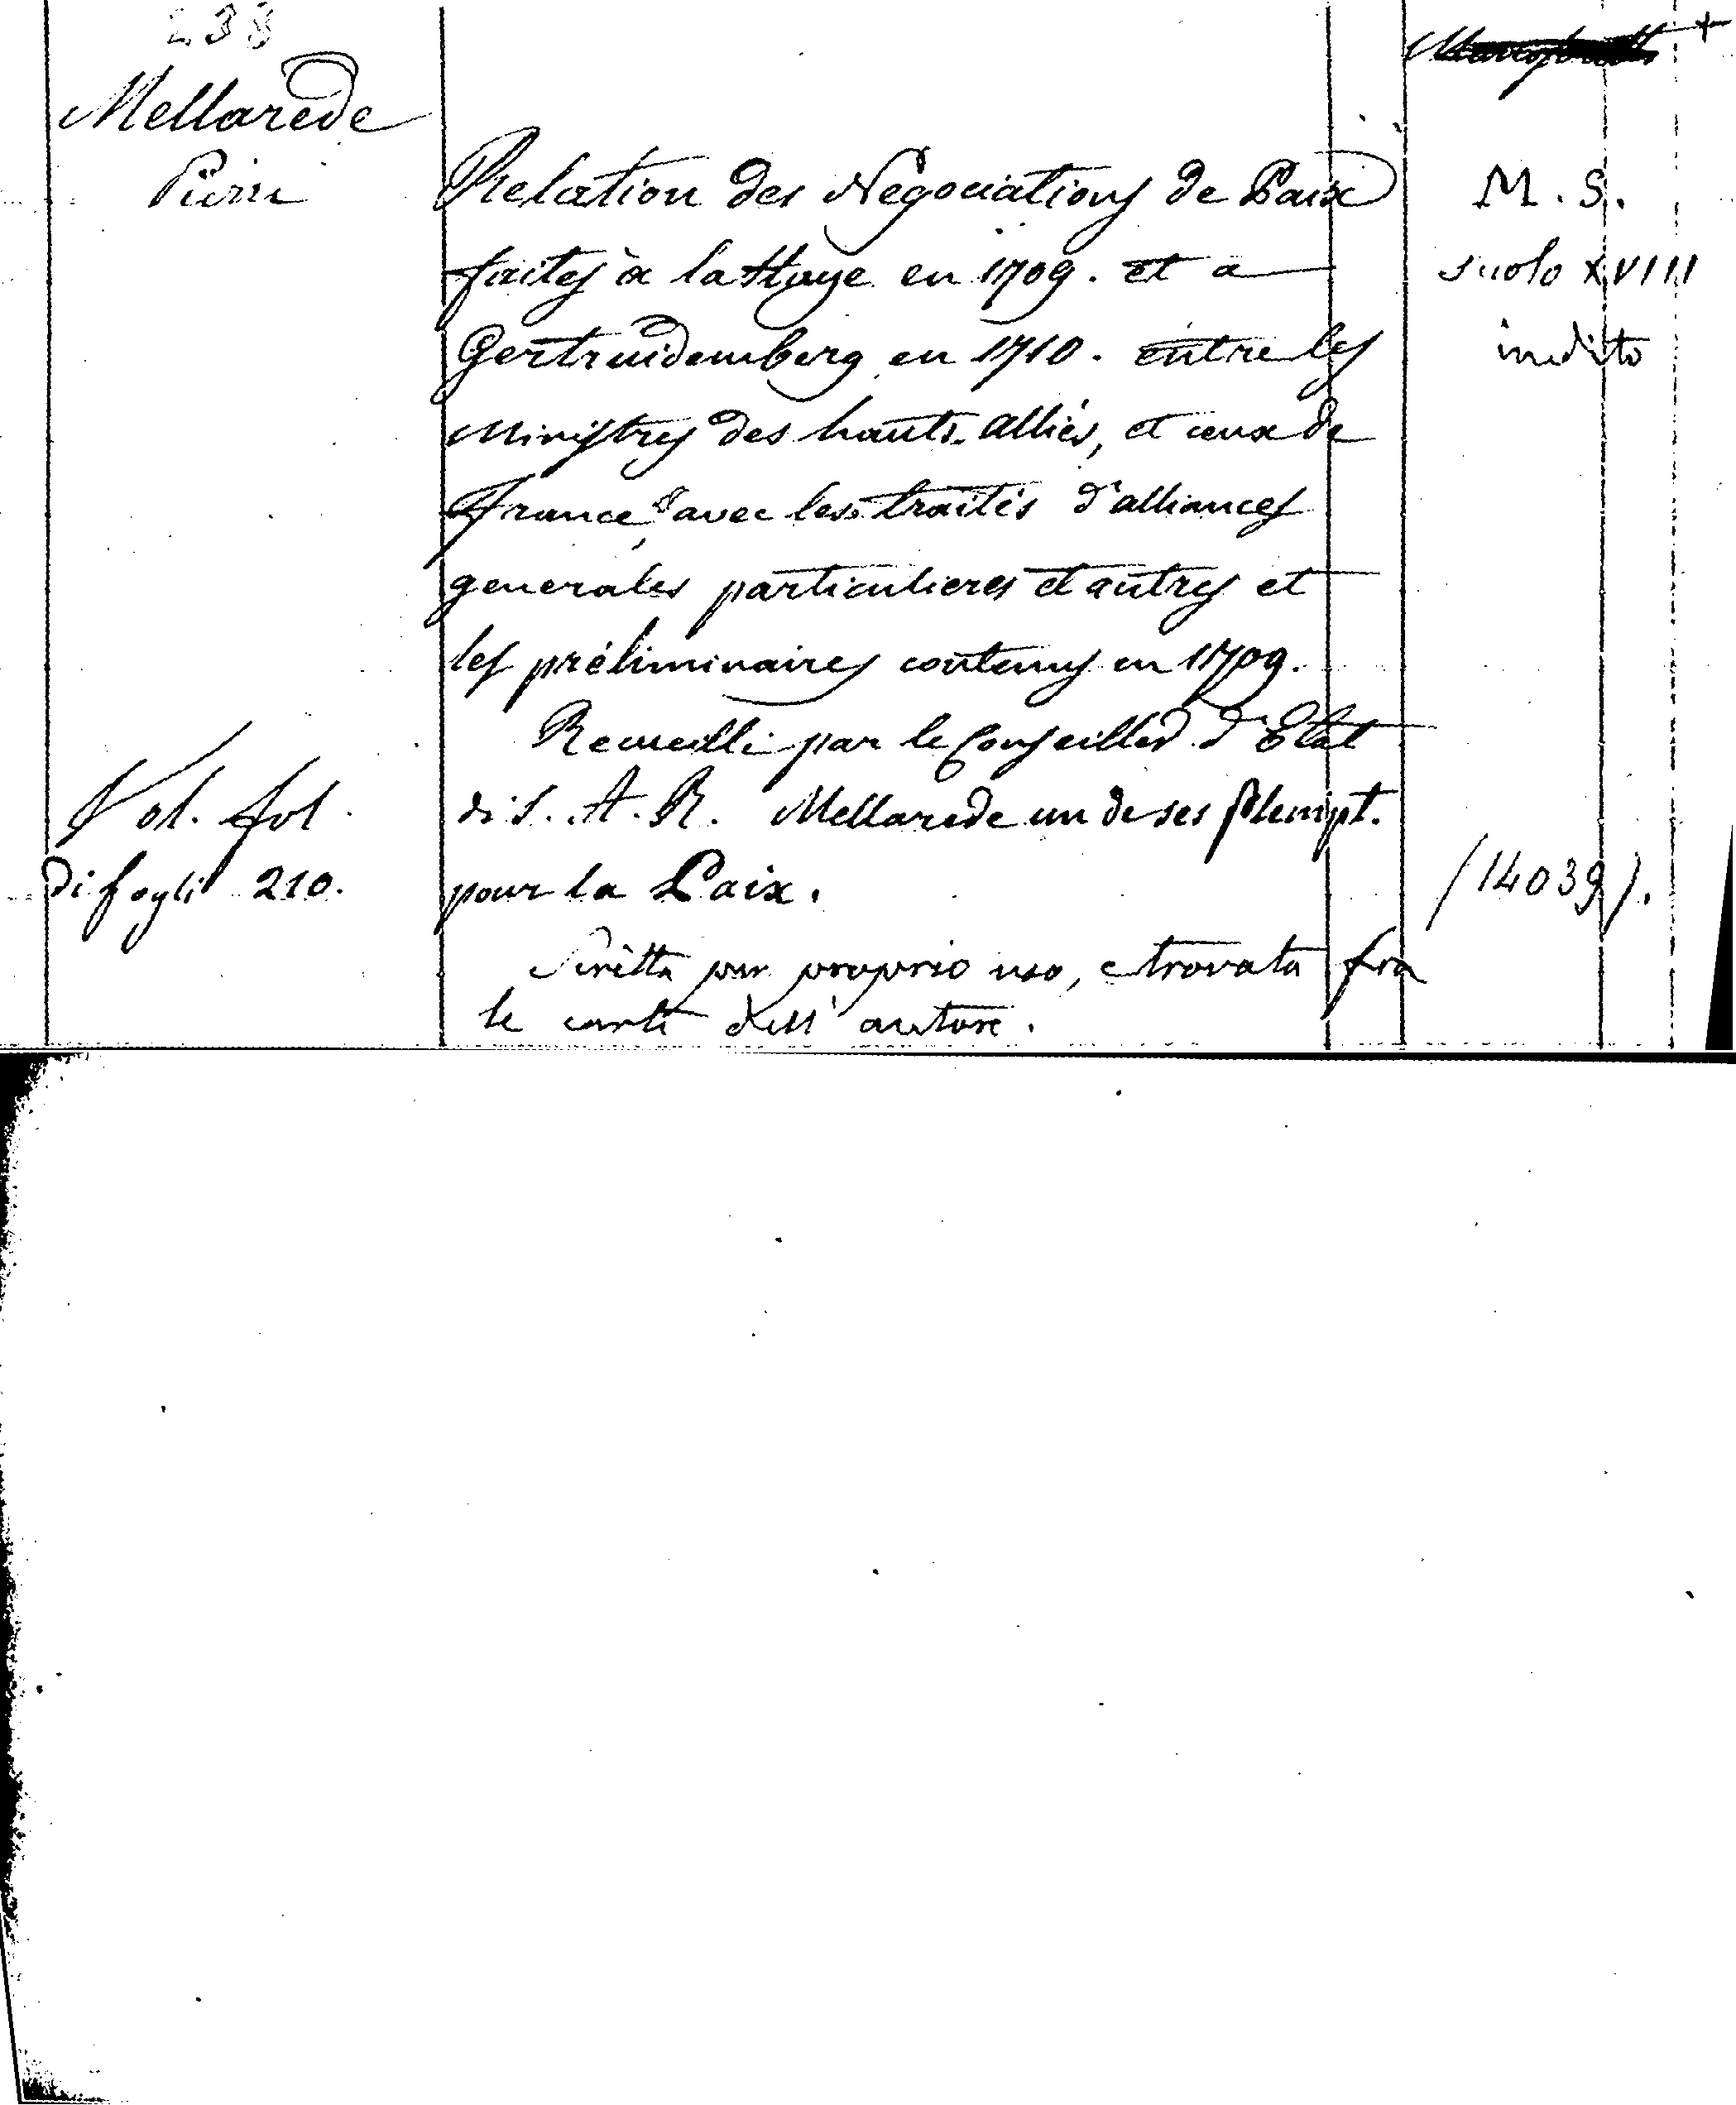 238
Mellarede
Pierre
Relation des Negociations de Paix
faites à la Haye en 1709. et a
Gertruidemberg en 1710. entre les
Ministres des hauts Alliés, et ceux de
France, avec les traités d'alliances
generales particulieres et autres et
les préliminaires contenus en 1709.
Recueilli par le Conseiller d'Etat
di S. A. R. Mellarede un de ses Plenipt.
pour la Paix.
Scritta per proprio uso, e trovata fra
le carte dell' autore.
Vol. fol.
di fogli 210.
M. S.
secolo XVIII
inedito
(14039).